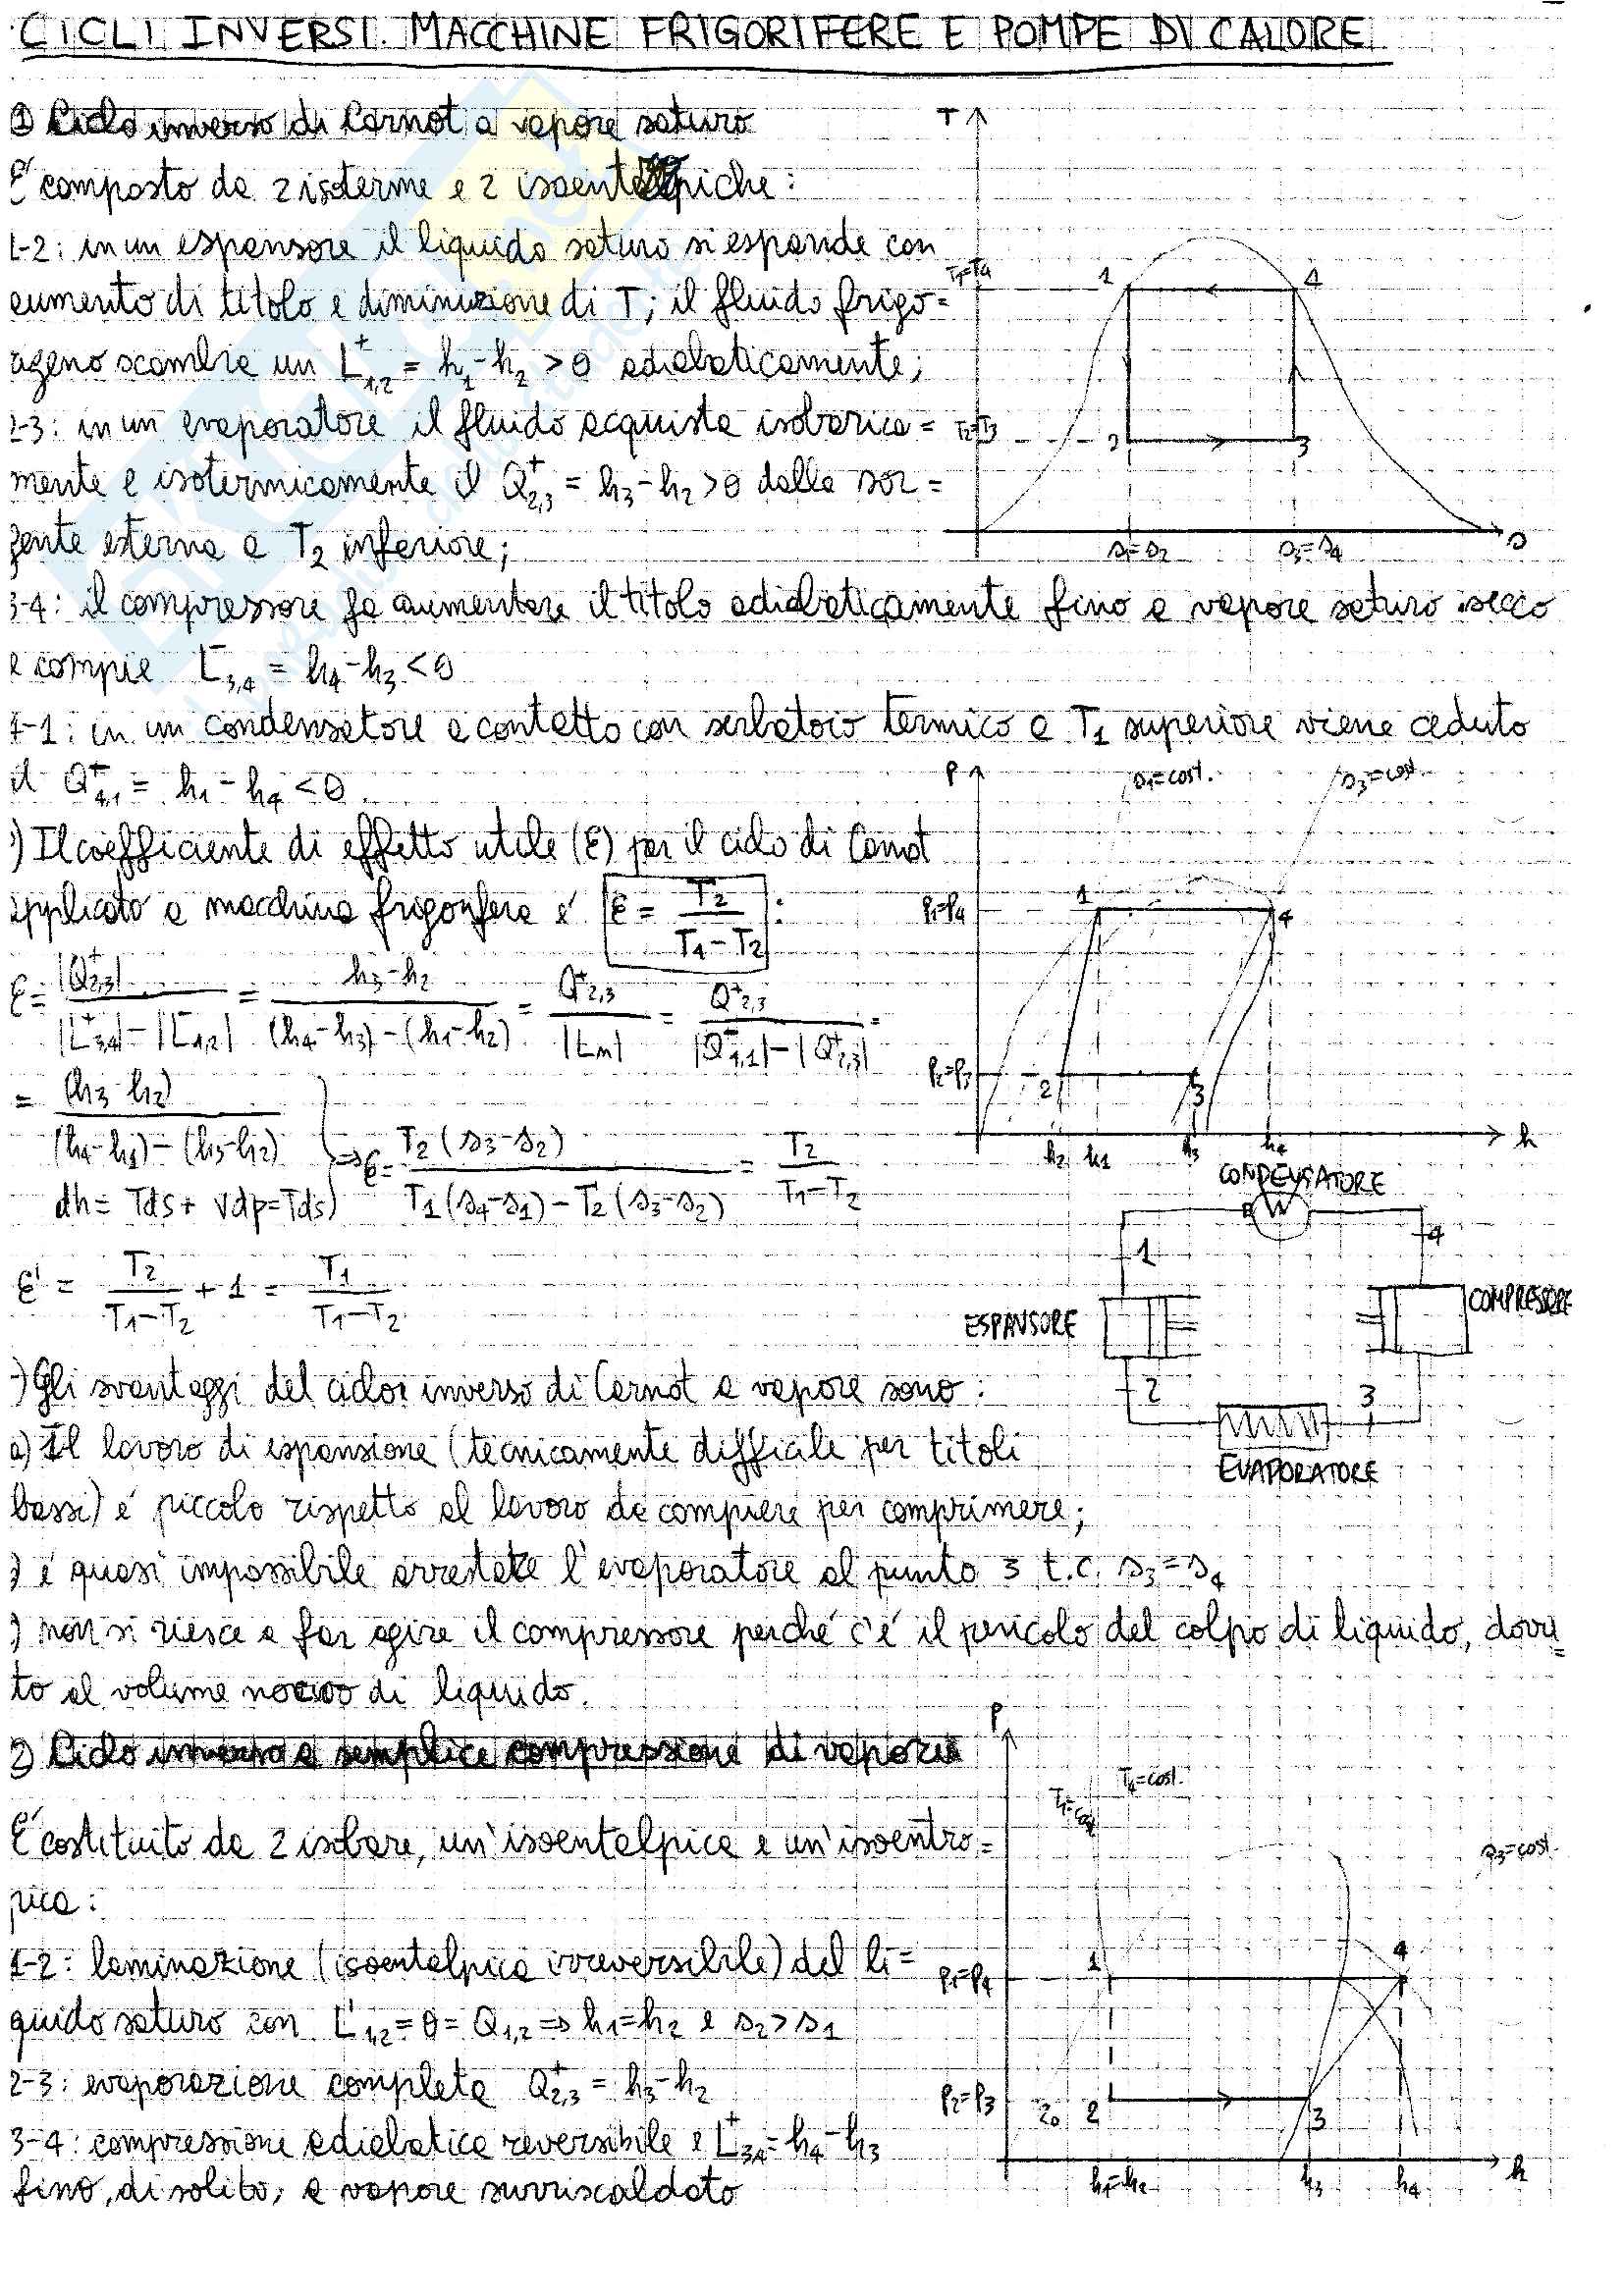 CICLI INVERSI. MACCHINE FRIGORIFERE E POMPE DI CALORE
① Ciclo inverso di Carnot a vapore saturo
È composto da 2 isoterme e 2 isoentropiche:
1-2: in un espansore il liquido saturo si espande con
aumento di titolo e diminuzione di T; il fluido frigo=
rigeno scambia un L⁺₁,₂ = h₁-h₂ > 0 adiabaticamente;
2-3: in un evaporatore il fluido acquista isobarica=
mente e isotermicamente il Q⁺₂,₃ = h₃-h₂ > 0 dalla sor=
gente esterna a T₂ inferiore;
3-4: il compressore fa aumentare il titolo adiabaticamente fino a vapore saturo secco
e compie L⁻₃,₄ = h₄-h₃ < 0
4-1: in un condensatore a contatto con serbatoio termico a T₁ superiore viene ceduto
il Q⁺₄,₁ = h₁-h₄ < 0.
T
T₁=T₄
1
4
T₂=T₃
2
3
s₁=s₂
s₃=s₄
s
·) Il coefficiente di effetto utile (ε) per il ciclo di Carnot
applicato a macchina frigorifera é ε = T₂ / (T₁-T₂) :
ε = |Q⁺₂,₃| / (|L⁺₃,₄| - |L⁻₁,₂|) = (h₃-h₂) / ((h₄-h₃)-(h₁-h₂)) = Q⁺₂,₃ / |Lm| = Q⁺₂,₃ / (|Q⁻₄,₁|-|Q⁺₂,₃|) =
= (h₃-h₂) / ((h₄-h₁)-(h₃-h₂))
dh = Tds + vdp = Tds
⇒ ε = T₂(s₃-s₂) / (T₁(s₄-s₁)-T₂(s₃-s₂)) = T₂ / (T₁-T₂)
ε' = T₂ / (T₁-T₂) + 1 = T₁ / (T₁-T₂)
P
s₁=cost.
s₃=cost.
P₁=P₄
1
4
P₂=P₃
2
3
h₂ h₁
h₃
h₄
h
CONDENSATORE
1
4
ESPANSORE
COMPRESSORE
2
3
EVAPORATORE
·) Gli svantaggi del ciclo inverso di Carnot a vapore sono:
a) Il lavoro di espansione (tecnicamente difficile per titoli
bassi) é piccolo rispetto al lavoro da compiere per comprimere;
) é quasi impossibile arrestare l'evaporatore al punto 3 t.c. s₃=s₄
) non si riesce a far agire il compressore perché c'é il pericolo del colpo di liquido, dovu=
to al volume nocivo di liquido.
2) Ciclo inverso a semplice compressione di vapore
È costituito da 2 isobare, un'isoentalpica e un'isoentro=
pica:
1-2: laminazione (isoentalpica irreversibile) del li=
quido saturo con L'₁,₂=0=Q₁,₂ ⇒ h₁=h₂ e s₂>s₁
2-3: evaporazione completa Q⁺₂,₃ = h₃-h₂
3-4: compressione adiabatica reversibile e L⁺₃,₄=h₄-h₃
fino, di solito, a vapore surriscaldato
P
T₁=cost
T₄=cost.
s₃=cost.
P₁=P₄
1
4
P₂=P₃
2₀
2
3
h₁=h₂
h₃
h₄
h